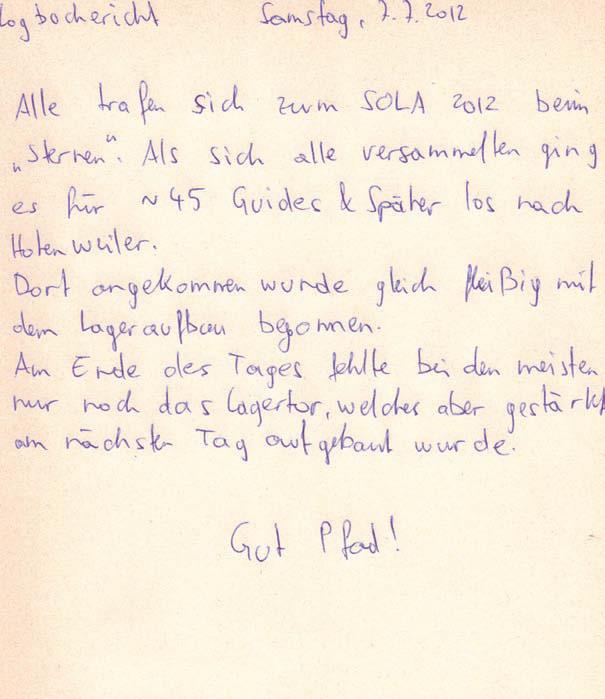 Logbochericht Samstag, 7.7.2012
Alle trafen sich zum SOLA 2012 beim
„Sternen". Als sich alle versammelten ging
es für ~45 Guides & Späher los nach
Hotenweiler.
Dort angekommen wurde gleich fleißig mit
dem Lageraufbau begonnen.
Am Ende des Tages fehlte bei den meisten
nur noch das Lagertor, welches aber gestärkt
am nächsten Tag aufgebaut wurde.
Gut Pfad!